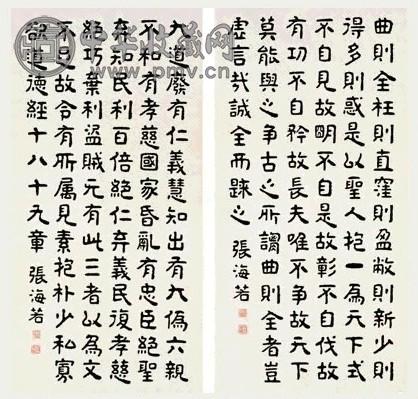 曲則全枉則直窪則盈敝則新少則
得多則惑是以聖人抱一為天下式
不自見故明不自是故彰不自伐故
有功不自矜故長夫唯不争故天下
莫能與之争古之所謂曲則全者豈
虛言哉誠全而歸之 張海若
大道廢有仁義慧知出有大偽六親
不和有孝慈國家昏亂有忠臣絕聖
弃知民利百倍絕仁弃義民復孝慈
絕巧棄利盜賊无有此三者以為文
不足故令有所属見素抱朴少私寡
欲道德經十八十九章 張海若
中华收藏网
www.pmv.cn